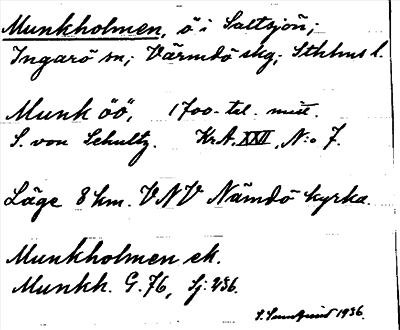 Munkholmen, ö i Saltsjön;
Ingarö sn; Värmdö skg; Sthlms l.
Munk öö, 1700-tal. mitt.
S. von Schultz. Kr.A. XXII, N:o 7.
Läge 8 km. VNV Nämdö kyrka.
Munkholmen ek.
Munkh. G. 76, Sj: 236.
1936.